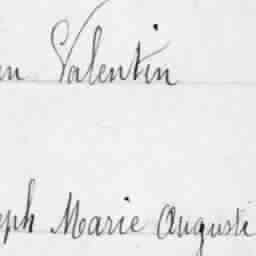 en Valentin
eph Marie Augusti